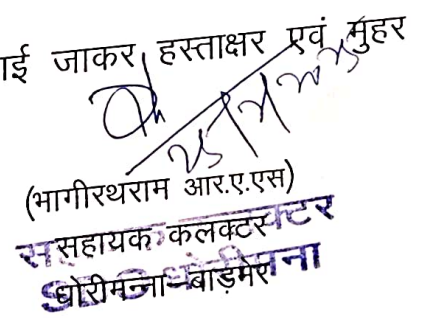 ाई जाकर हस्ताक्षर एवं मुहर
(भागीरथराम आर.ए.एस)
सहायक कलक्टर
धोरीमन्ना-बाड़मेर